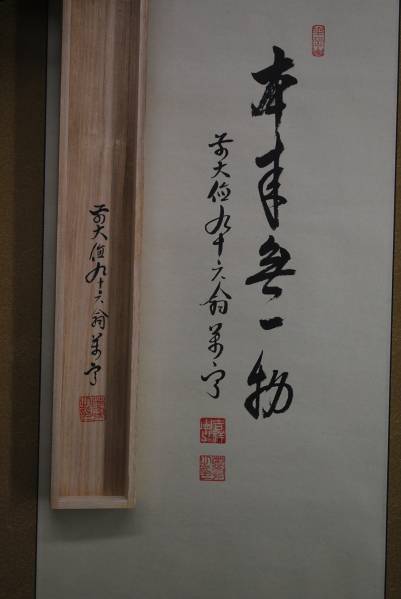 本来無一物
前大德九十六翁萬宁
前大德九十六翁萬宁